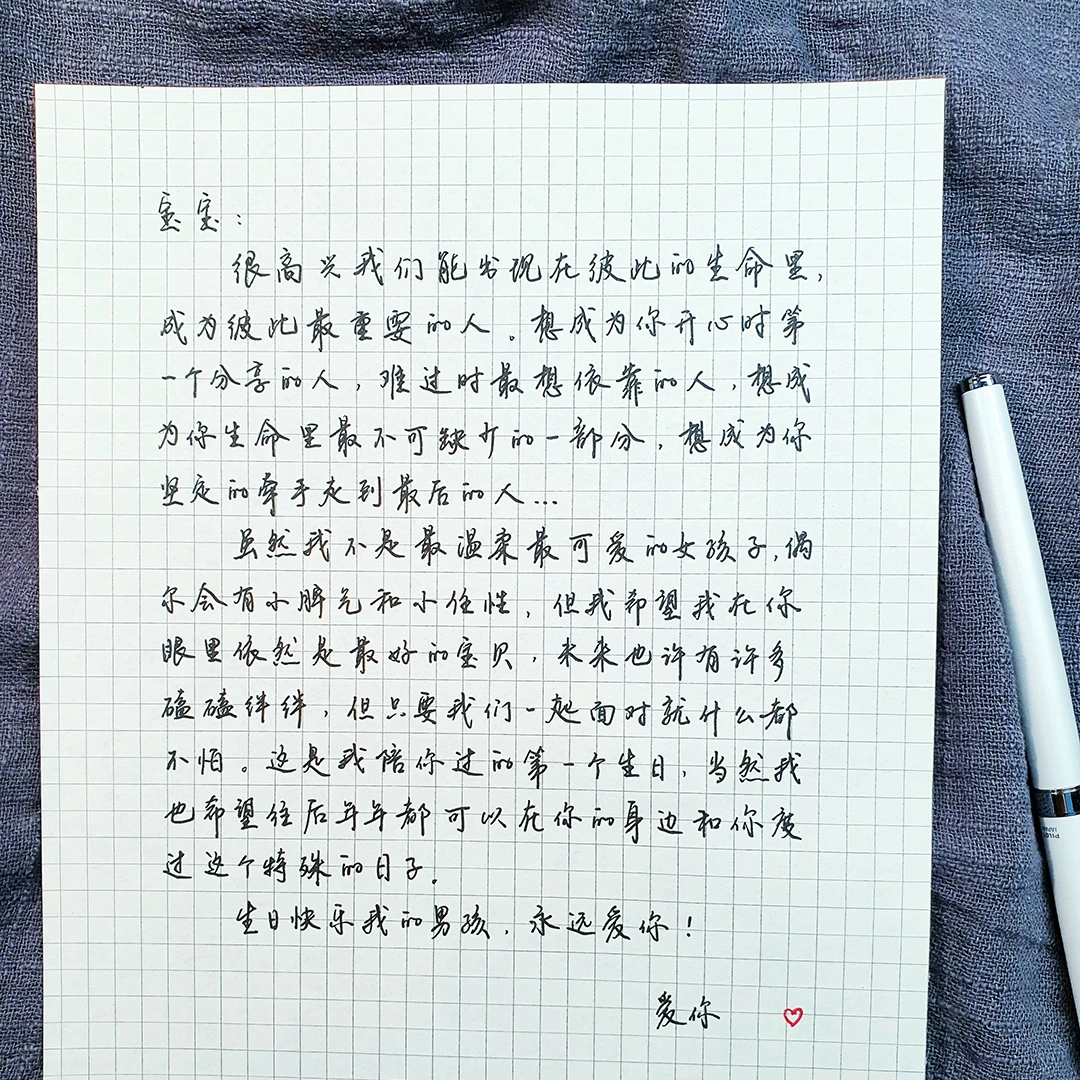 宝宝：
很高兴我们能出现在彼此的生命里，
成为彼此最重要的人。想成为你开心时第
一个分享的人，难过时最想依靠的人，想成
为你生命里最不可缺少的一部分，想成为你
坚定的牵手走到最后的人...
虽然我不是最温柔最可爱的女孩子，偶
尔会有小脾气和小任性，但我希望我在你
眼里依然是最好的宝贝，未来也许有许多
磕磕绊绊，但只要我们一起面对就什么都
不怕。这是我陪你过的第一个生日，当然我
也希望往后年年都可以在你的身边和你度
过这个特殊的日子。
生日快乐我的男孩，永远爱你！
爱你
PILOT
JAPAN